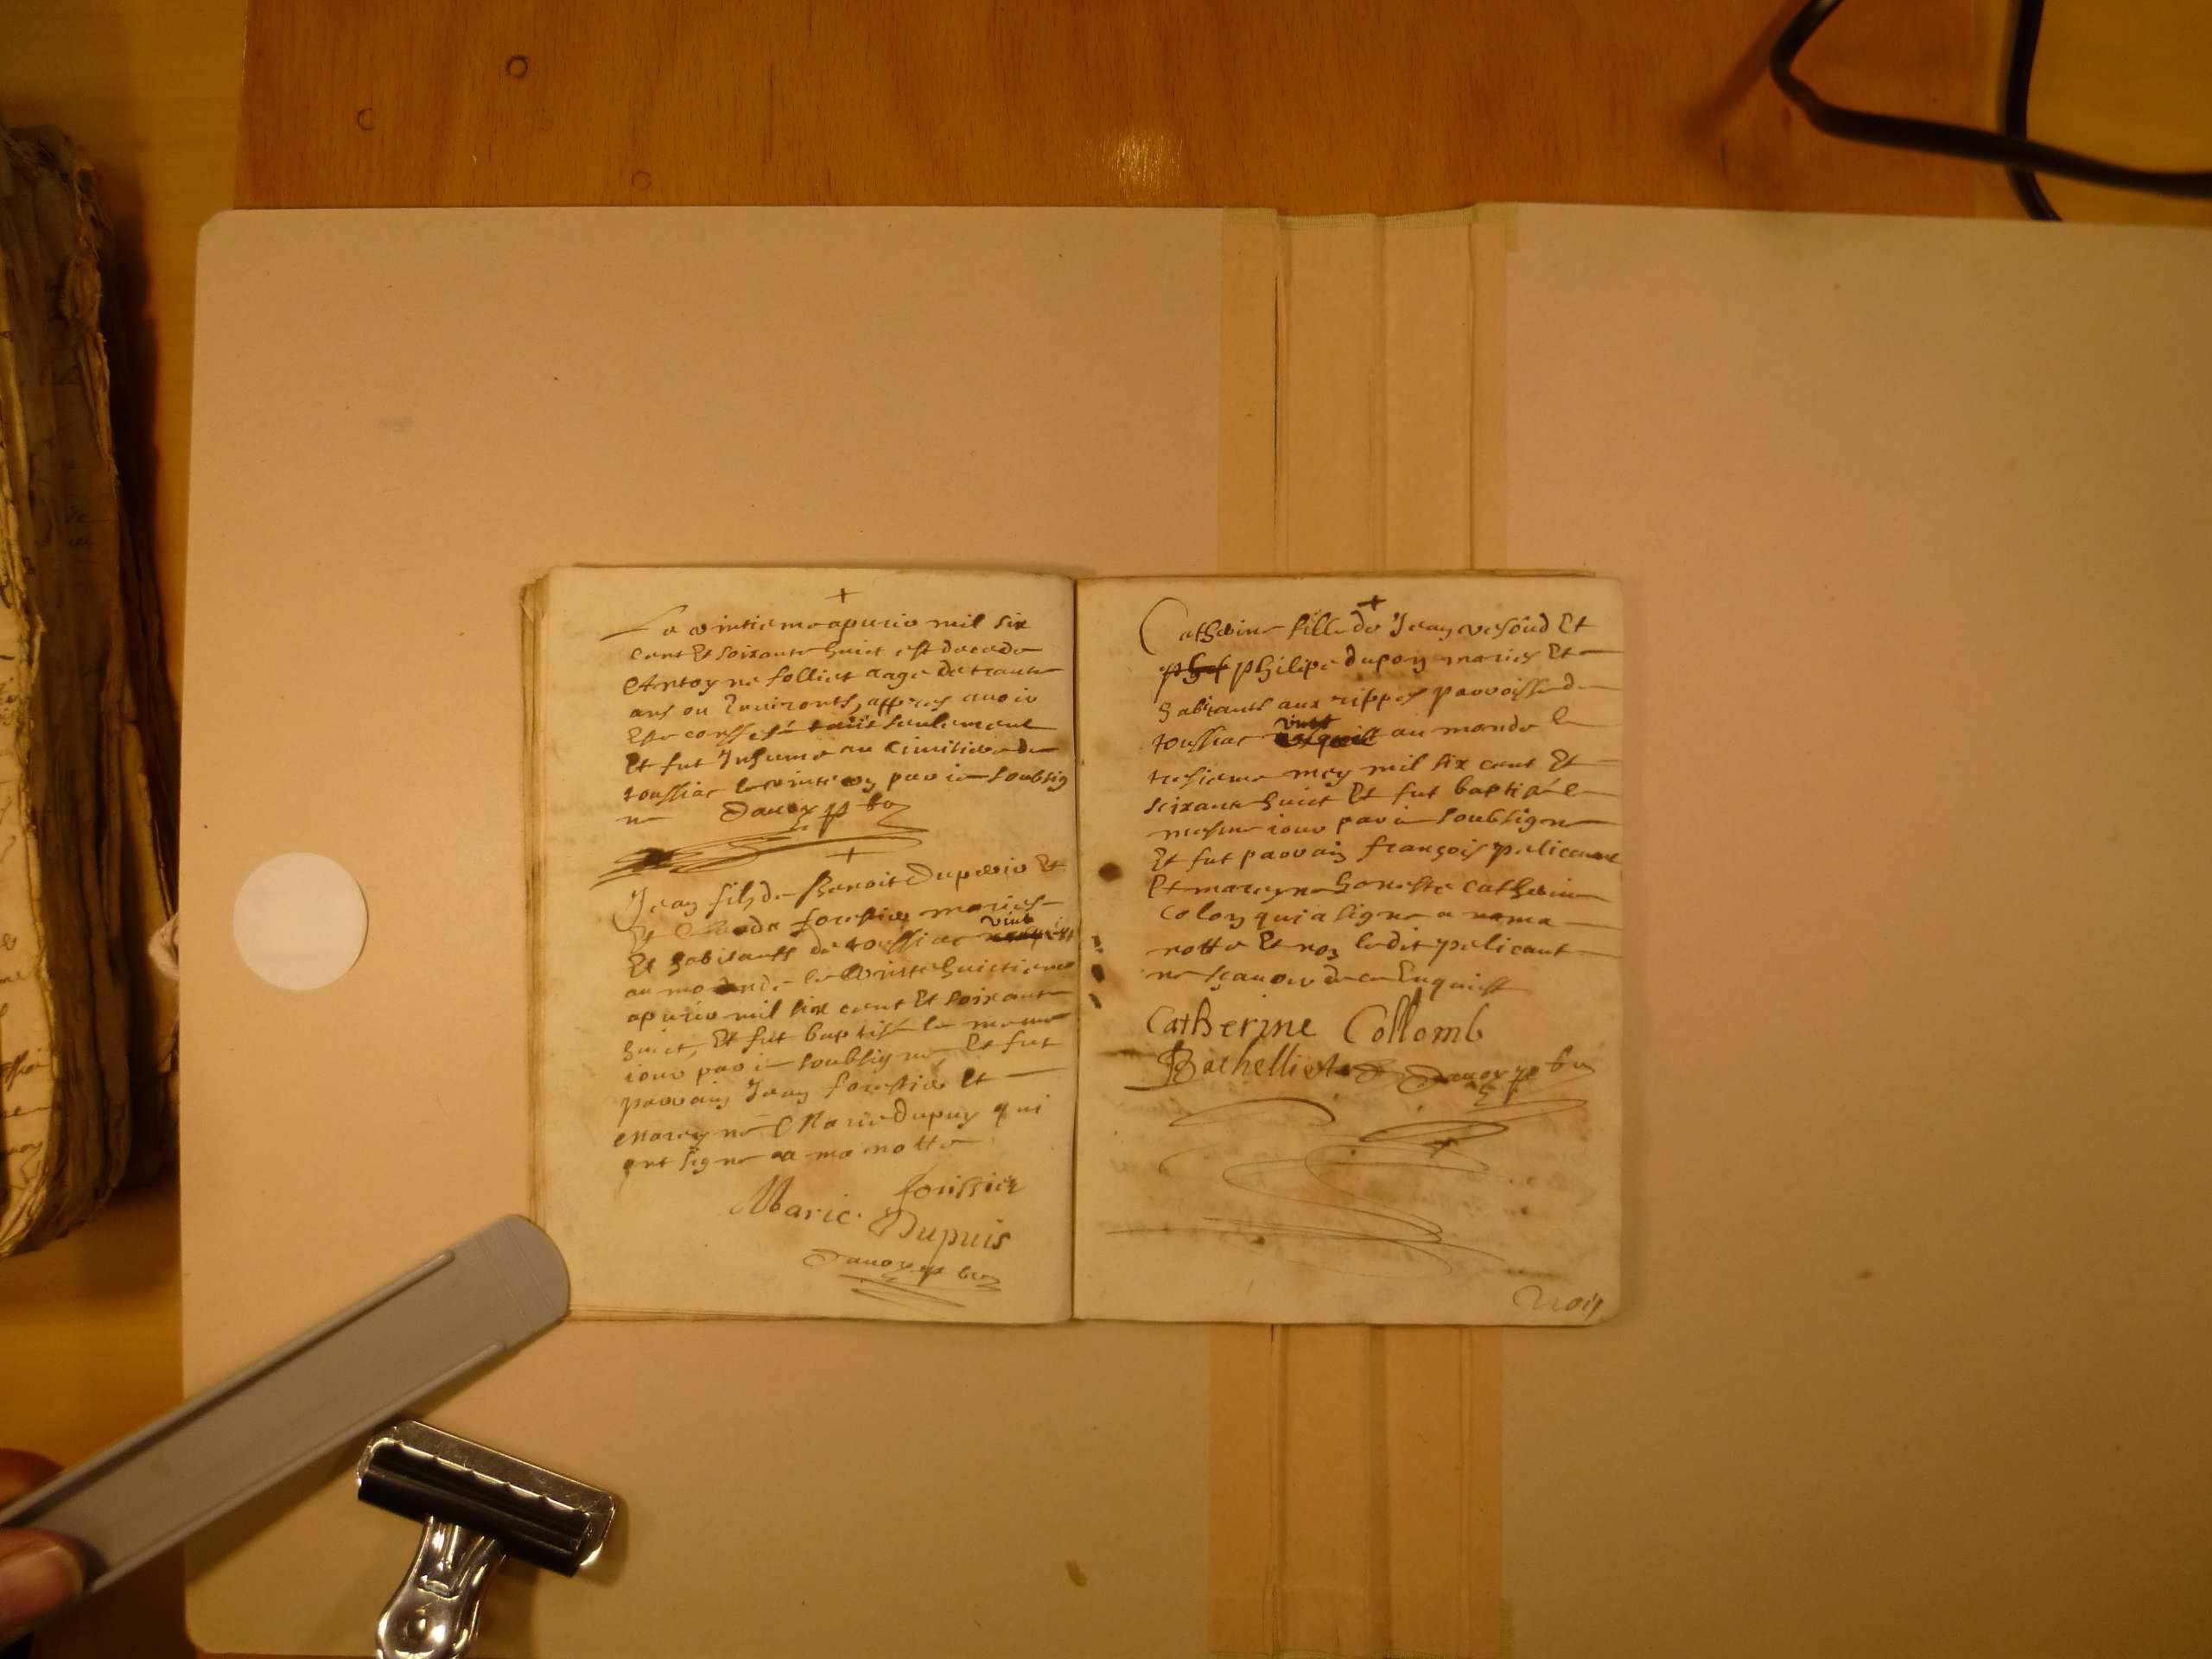 +
Le vintieme apvril mil six
cent Et soixante huict est decede
Antoyne folliet aage de trante
ans ou Environts, appres avoir
Este conffessé tant seulement
Et fut Inhumé au Cimitiere de
toussiac le vinte un par ie soubsig
ne Danoy pbre
+
Jean fils de Benoit Duperir Et
De Clauda forestier maries
Et habitants de toussiac vint
au monde le vinte huictieme
apvril mil six cent Et soixante
huict, Et fut baptisé le meme
iour par ie soubsigne, Et fut
parrain Jean forestier Et
Mareyne Marie Dupuy qui
ont signe a ma notte
forissier
Marie Dupuis
Danoy pbre
+
Catherine fille de Jean vesoud Et
phil philipe dupon maries Et
habitants aux rippes parroisse de
toussiac vint au monde le
tresieme may mil six cent Et
soixante huict Et fut baptisé le
mesme iour par ie soubsigne
Et fut parrain françois pelicant
Et mareyne honeste catherine
Colon qui a signe a ma
notte Et non ledit pelicant
ne sçavoir de ce Enquist
Catherine Collomb
Bachellier Danoy pbre